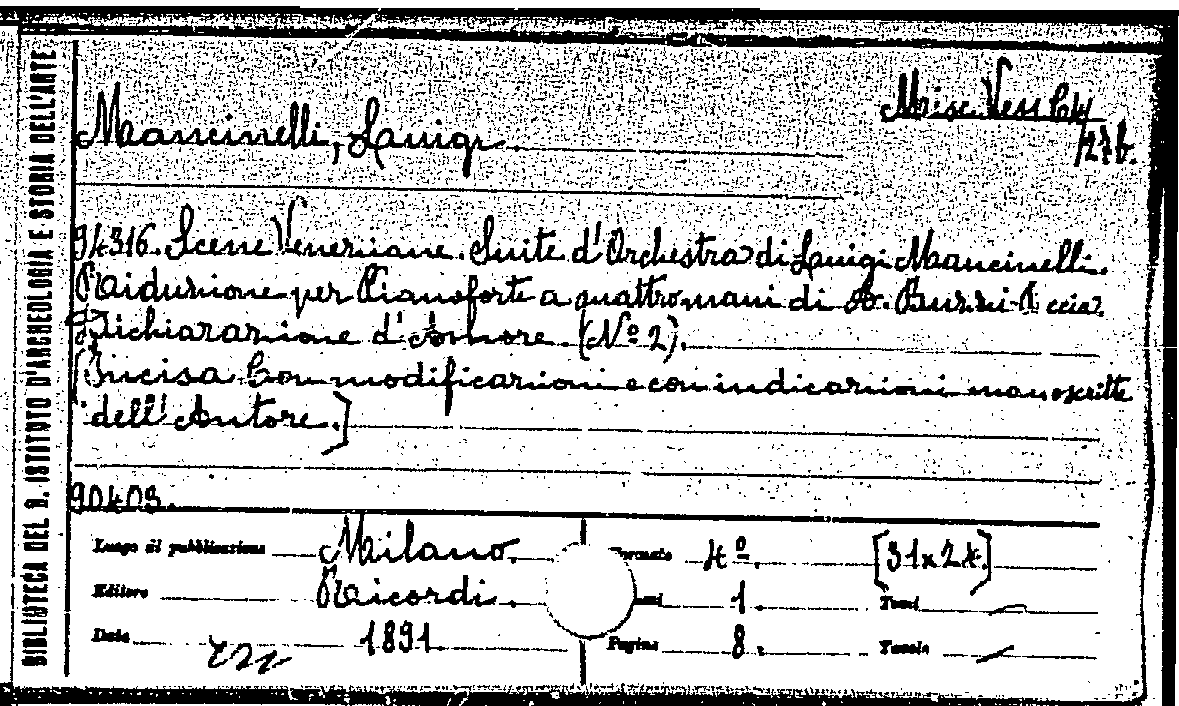 BIBLIOTECA DEL R. ISTITUTO D'ARCHEOLOGIA E STORIA DELL'ARTE
Mancinelli, Luigi
Misc. Vess.
/27b.
94316. Scene Veneziane. Suite d'Orchestra di Luigi Mancinelli.
Riduzione per Pianoforte a quattro mani di A. Buzzi-Peccia.
Dichiarazione d'Amore. (Nº 2).
[Incisa con modificazioni e con indicazioni manoscritte
dell'Autore.]
90403.
Luogo di pubblicazione Milano.
Formato 4º. [31x24.]
Editore Ricordi.
1. Tomi
Data 1891.
Pagine 8. Tavole